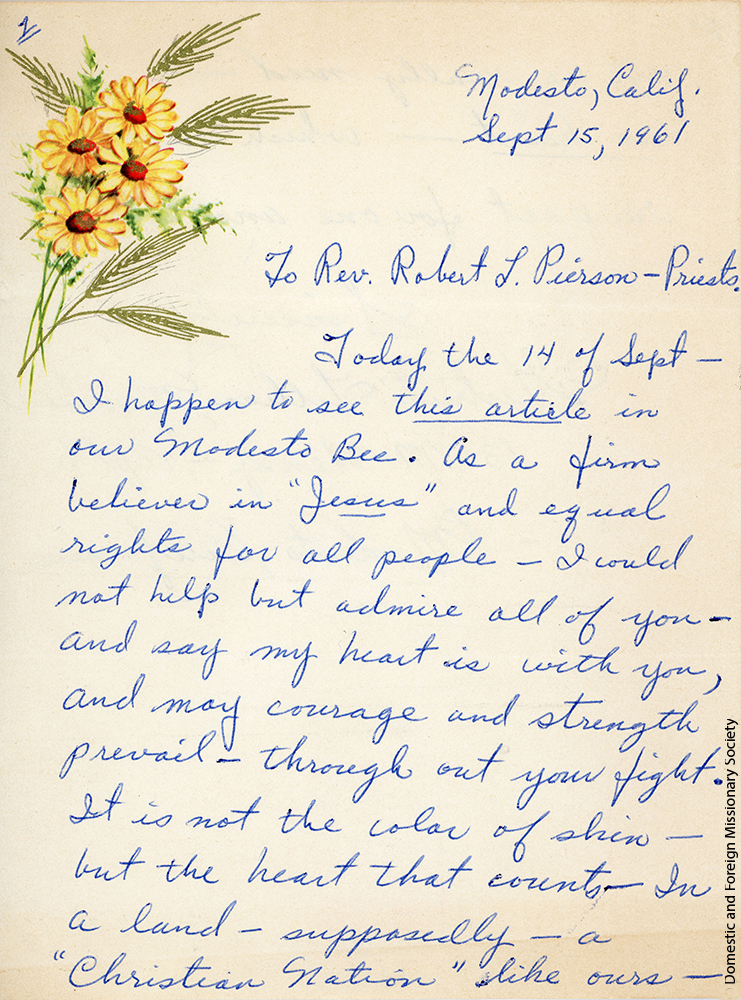 1
Modesto, Calif.
Sept 15, 1961
To Rev. Robert L. Pierson - Priests.
Today the 14 of Sept -
I happen to see this article in
our Modesto Bee. As a firm
believer in "Jesus" and equal
rights for all people - I could
not help but admire all of you -
and say my heart is with you,
and may courage and strength
prevail - through out your fight.
It is not the color of skin -
but the heart that counts - In
a land - supposedly - a
"Christian Nation" like ours -
Domestic and Foreign Missionary Society